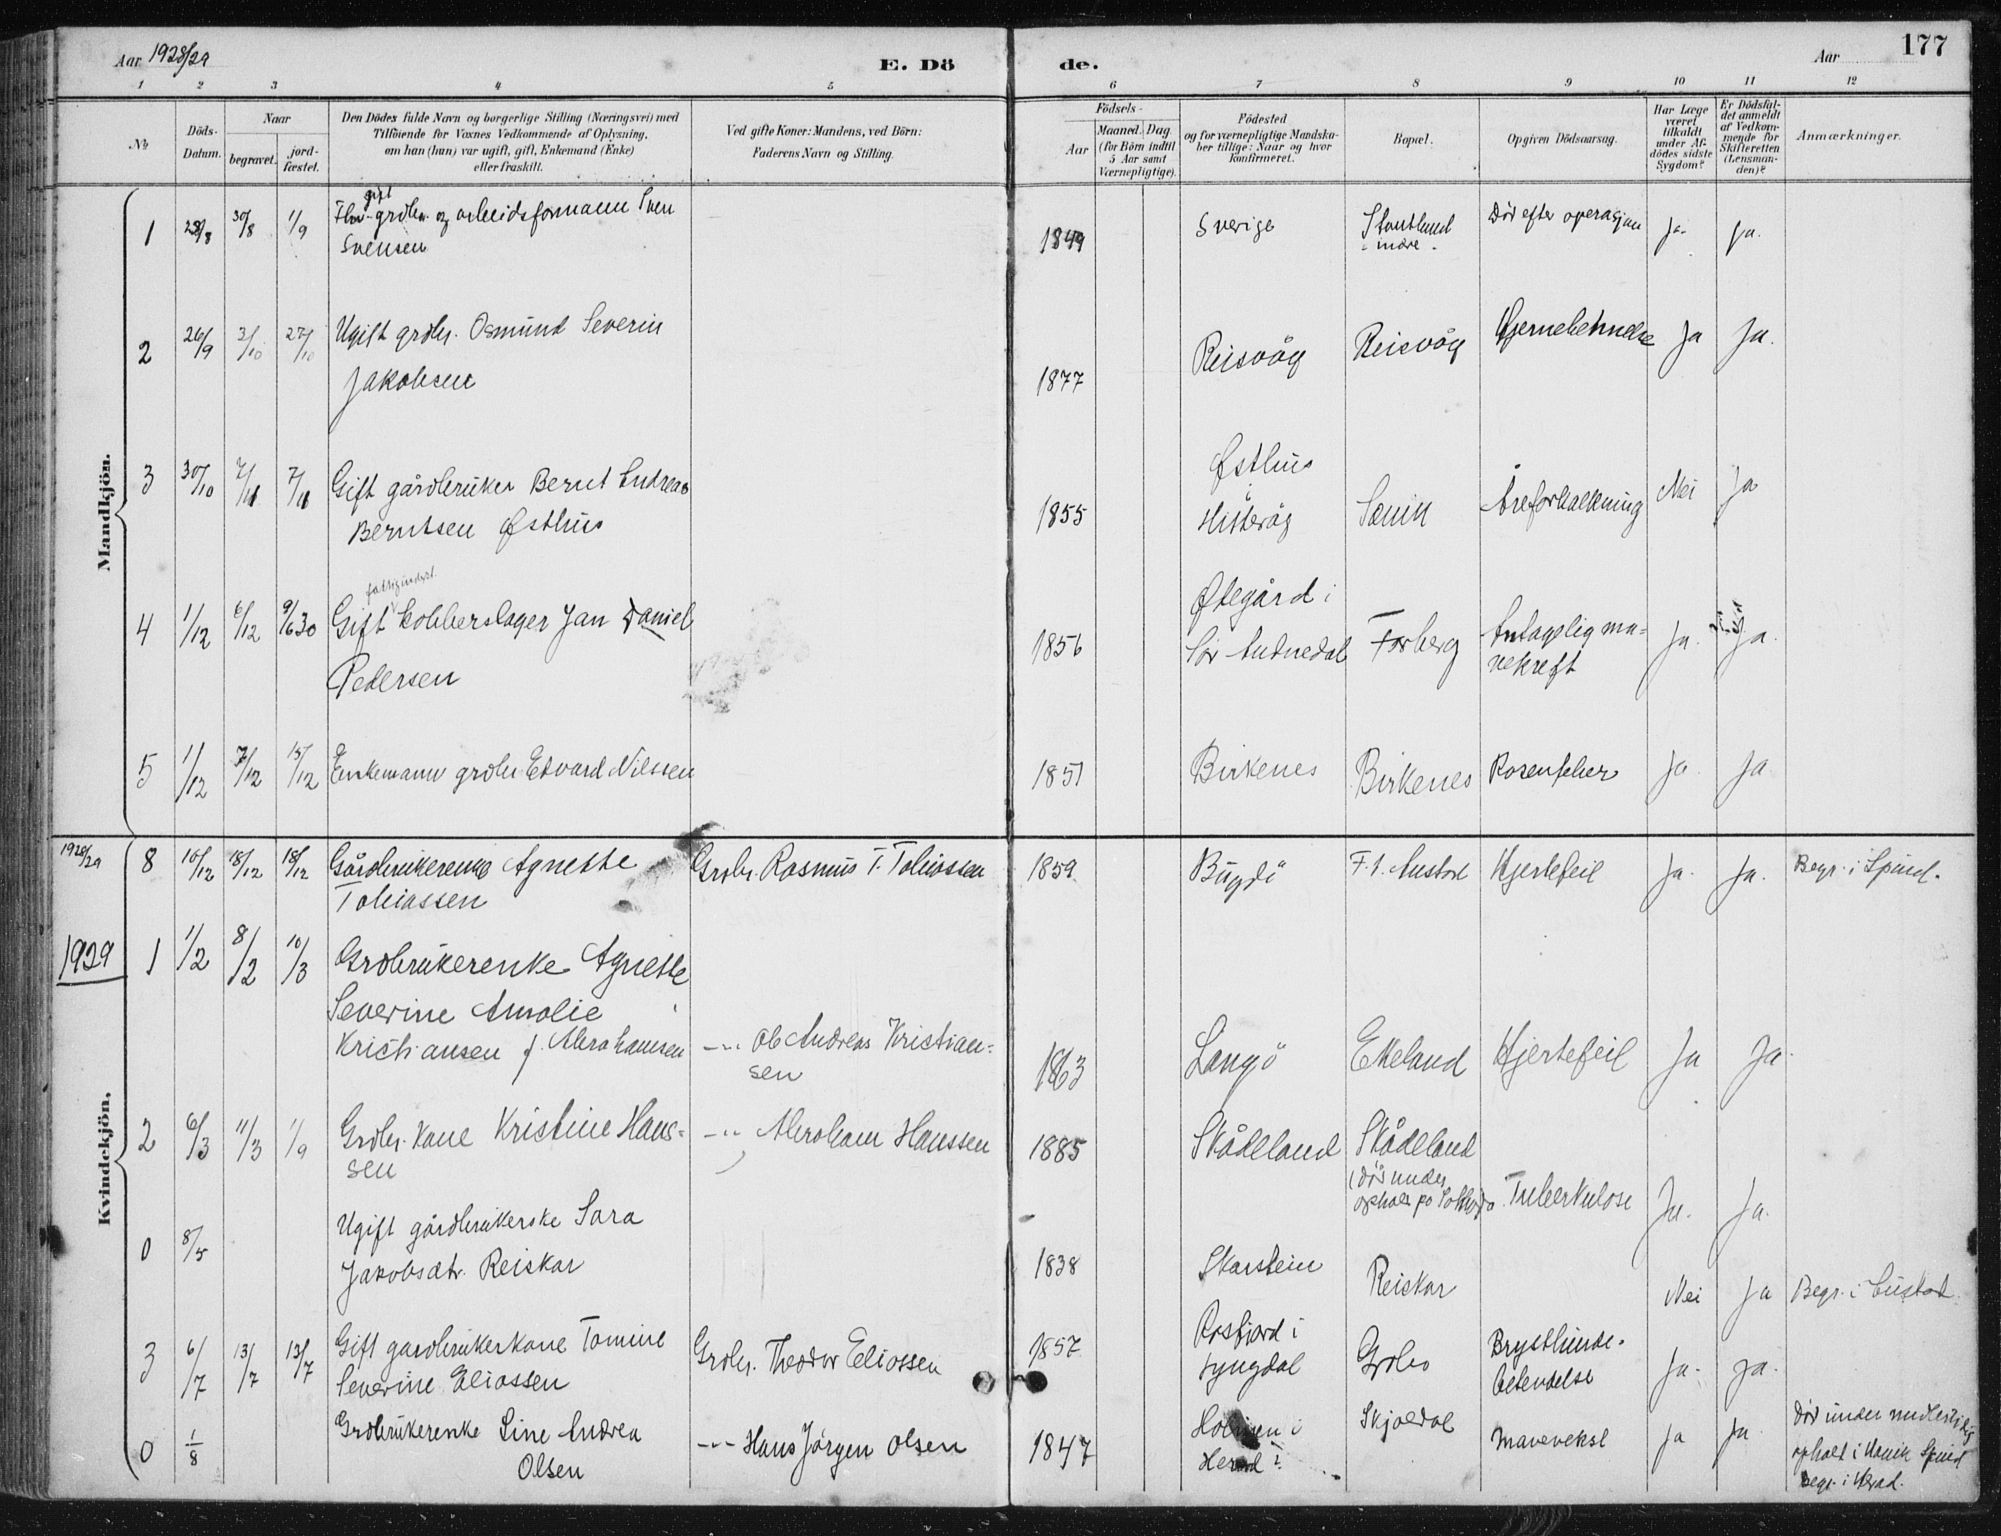 Aar 1928/29
E. Dö
de.
Aar
177
1 2 3 4 5 6 7 8 9 10 11 12
No
Döds-
Datum.
Naar
begravet.
jord-
fæstet.
Den Dödes fulde Navn og borgerlige Stilling (Næringsvei) med
Tilföiende for Voxnes Vedkommende af Oplysning,
om han (hun) var ugift, gift, Enkemand (Enke)
eller fraskilt.
Ved gifte Koner: Mandens, ved Börn:
Faderens Navn og Stilling.
Födsels-
Aar
Maaned. Dag.
(for Börn indtil
5 Aar samt
Værnepligtige).
Födested
og for værnepligtige Mandska-
ber tillige: Naar og hvor
konfirmeret.
Bopæl.
Opgiven Dödsaarsag.
Har Læge
været
tilkaldt
under Af-
dödes sidste
Sygdom?
Er Dödsfal-
det anmeldt
af Vedkom-
mende for
Skifteretten
(Lensman-
den)?
Anmærkninger.
Mandkjön.
gift
1 28/8 30/8 1/9 grdbr. og arbeidsformann Sven
Svensen
1849 Sverige indre Död efter operasjon Ja. Ja.
2 26/9 3/10 27/10 Ugift grdbr. Osmund Severin
Jakobsen
1877 Reisvåg Reisvåg Ja Ja.
3 30/10 7/11 7/11 Gift gårdbruker Bernt Andreas
Berntsen Østhus
1855 Østhus
Hitterøy Åreforkalkning Nei Ja
4 1/12 6/12 9/6 30 Gift kobberslager Jan Daniel
Pedersen
1856 Øtegård i
Sör Audnedal Forberg Antagelig ma-
vekreft Ja. Ja.
5 1/12 7/12 15/12 Enkemann grdbr. Edvard Nilssen
1851 Birkenes Birkenes Rosenfeber Ja Ja
Kvindekjön.
1928/29 8 10/12 18/12 18/12 Gårdbrukerenke Agnette
Tobiassen
Grdbr. Rasmus T. Tobiassen
1859 Bugdö F. h. Austad Hjertefeil Ja. Ja. Begr. i Spind.
1929 1 1/2 8/2 10/3 Grdbrukerenke Agnette
Severine Amalie
Kristiansen f. Abrahamsen
-"- Ole Andreas Kristian-
sen
1863 Langö Ekeland Hjertefeil Ja Ja.
2 6/3 11/3 1/9 Grdbr. kone Kristine Hans-
sen
-"- Abraham Hanssen
1885 Skådeland Skådeland
(död under
Tuberkulose Ja. Ja.
0 8/5 Ugift gårdbrukerske Sara
Jakobsdtr. Reiskar
1838 Skarstein Reiskar Nei Ja Begr. i Austad
3 6/7 13/7 13/7 Gift gardbrukerkone Tomine
Severine Eliassen
Grdbr. Theodor Eliassen
1857 Rosfjord i
Lyngdal Bryst
betendelse Ja. Ja.
0 1/8 Grdbrukerenke Sine Andrea
Olsen
-"- Hans Jörgen Olsen
1847 i
Herad Skjoldal Mavevekst Ja Ja Död under midlertidig
ophold i Spind
Begr. i Herad.